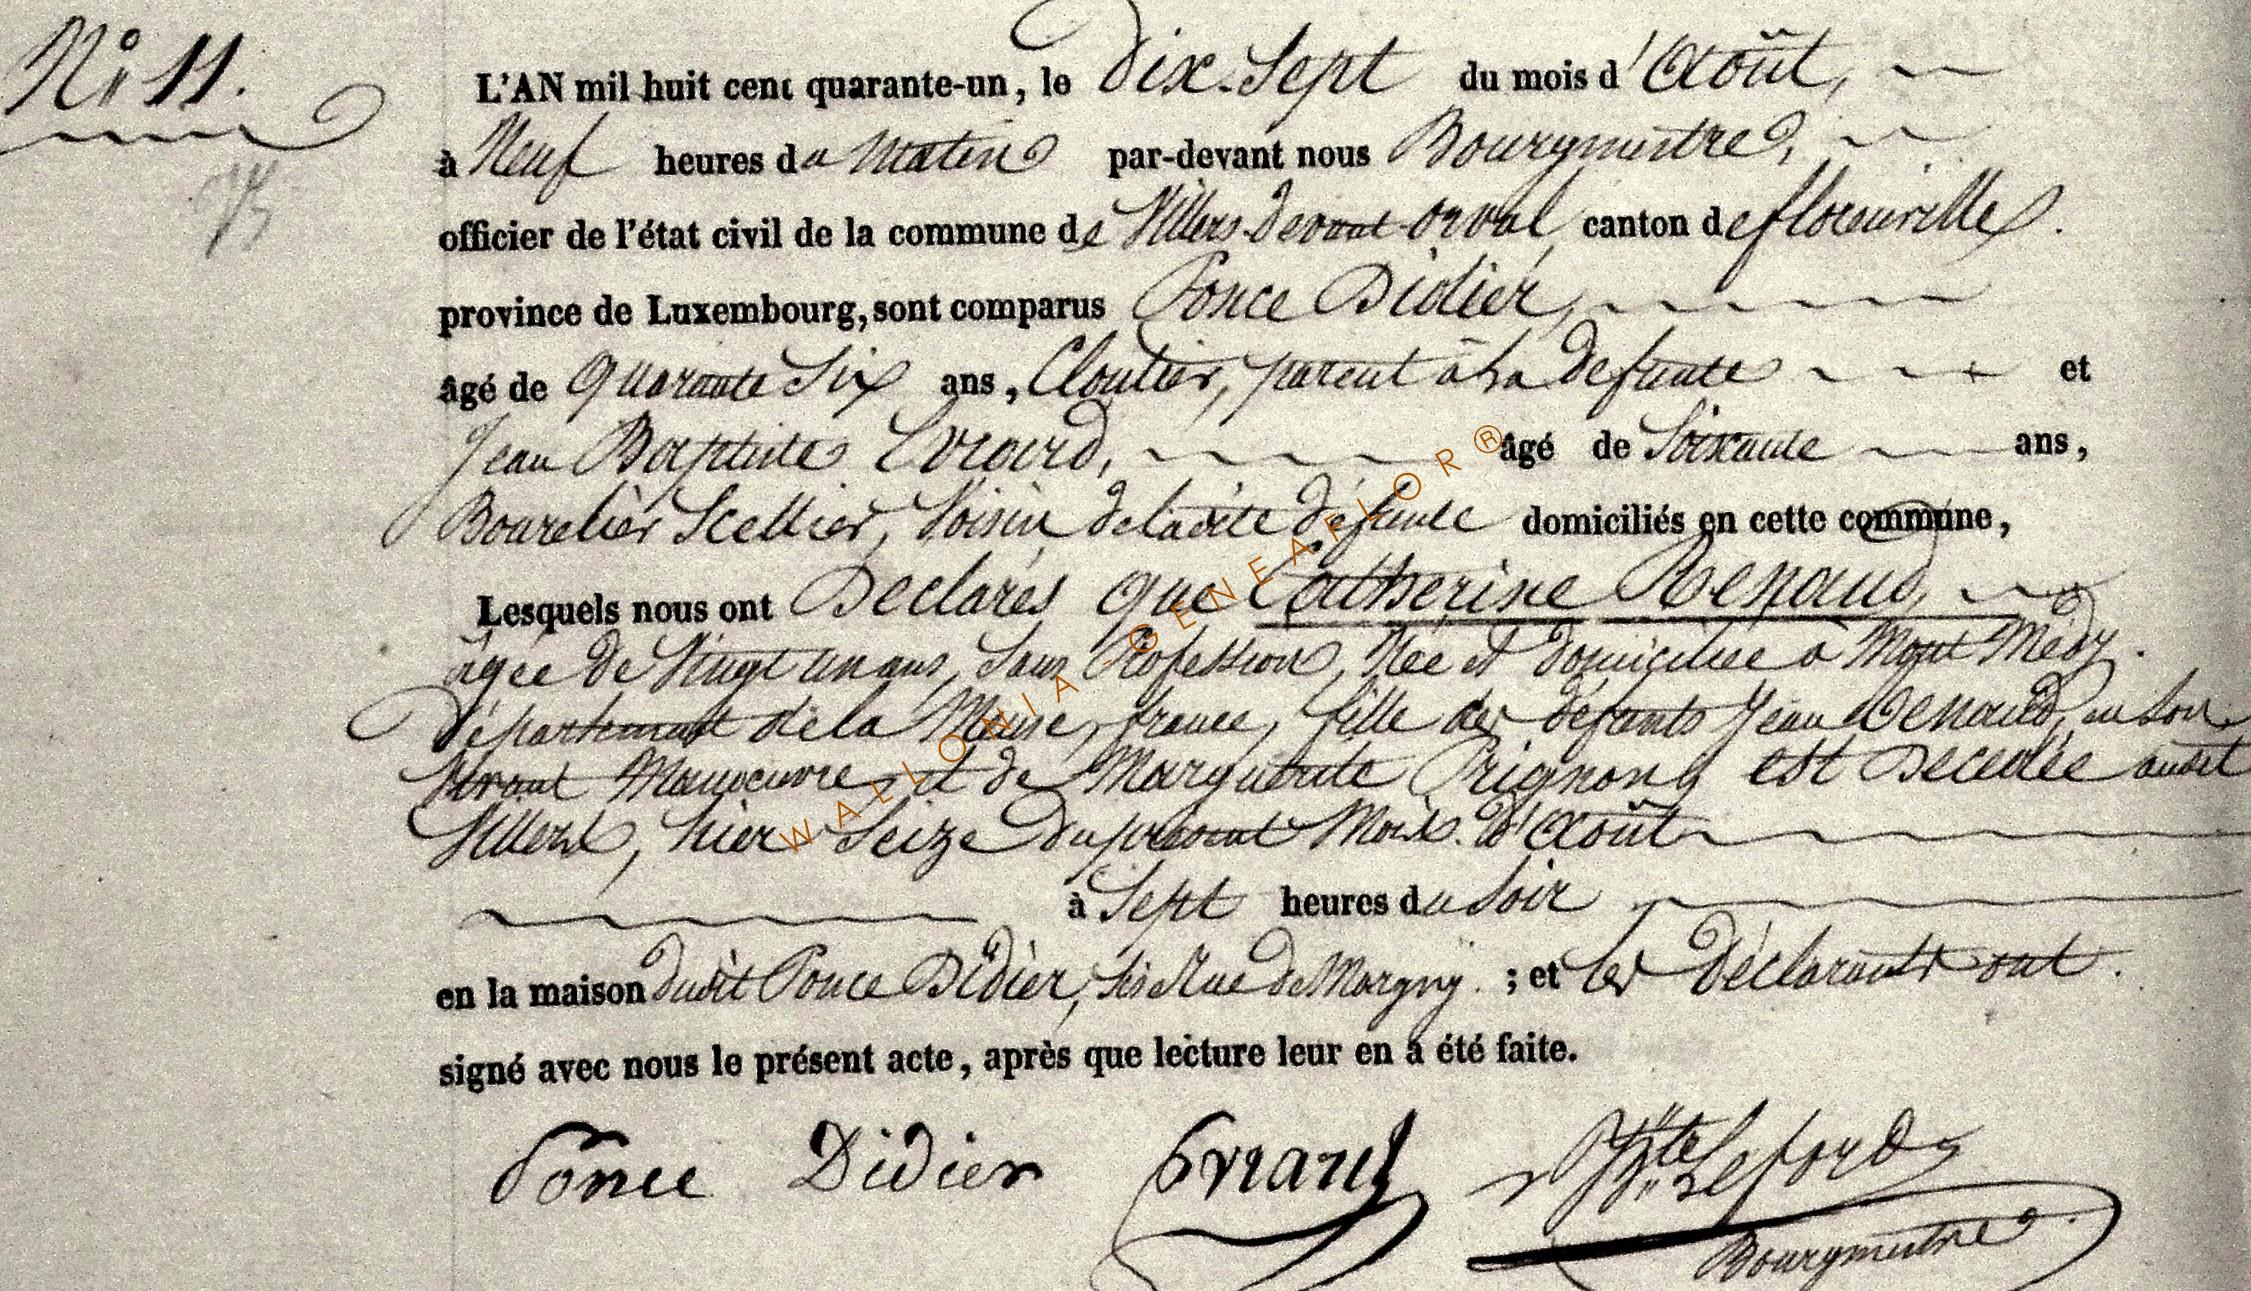 N° 11.
L'AN mil huit cent quarante-un, le Dix-Sept du mois d'Août,
à Neuf heures du Matin par-devant nous Bourgmestre,
officier de l'état civil de la commune de Villers-devant-orval canton de florenville.
province de Luxembourg, sont comparus Ponce Didier,
âgé de Quarante Six ans, Cloutier, parent à La Defunte et
Jean Baptiste Evrard, âgé de Soixante ans,
Bourelier Scellier, Voisin de ladite défunte domiciliés en cette commune,
Lesquels nous ont Déclarés que Catherine Renaud,
âgée de Vingt un ans, Sans Profession, Née et domiciliée à Mont Médy.
département de la Meuse, france, fille des défunts Jean Renaud, en Son
Vivant Manoeuvre, et de Marguerite Prignon, est Décédée audit
Villers, hier Seize du présent Mois d'Août
à Sept heures du Soir
en la maison dudit Ponce Didier, Sis Rue de Margny. ; et les déclarants ont.
signé avec nous le présent acte, après que lecture leur en a été faite.
Ponce Didier Evrard
Bourgmestre
WALLONIA GENEAFLOR®